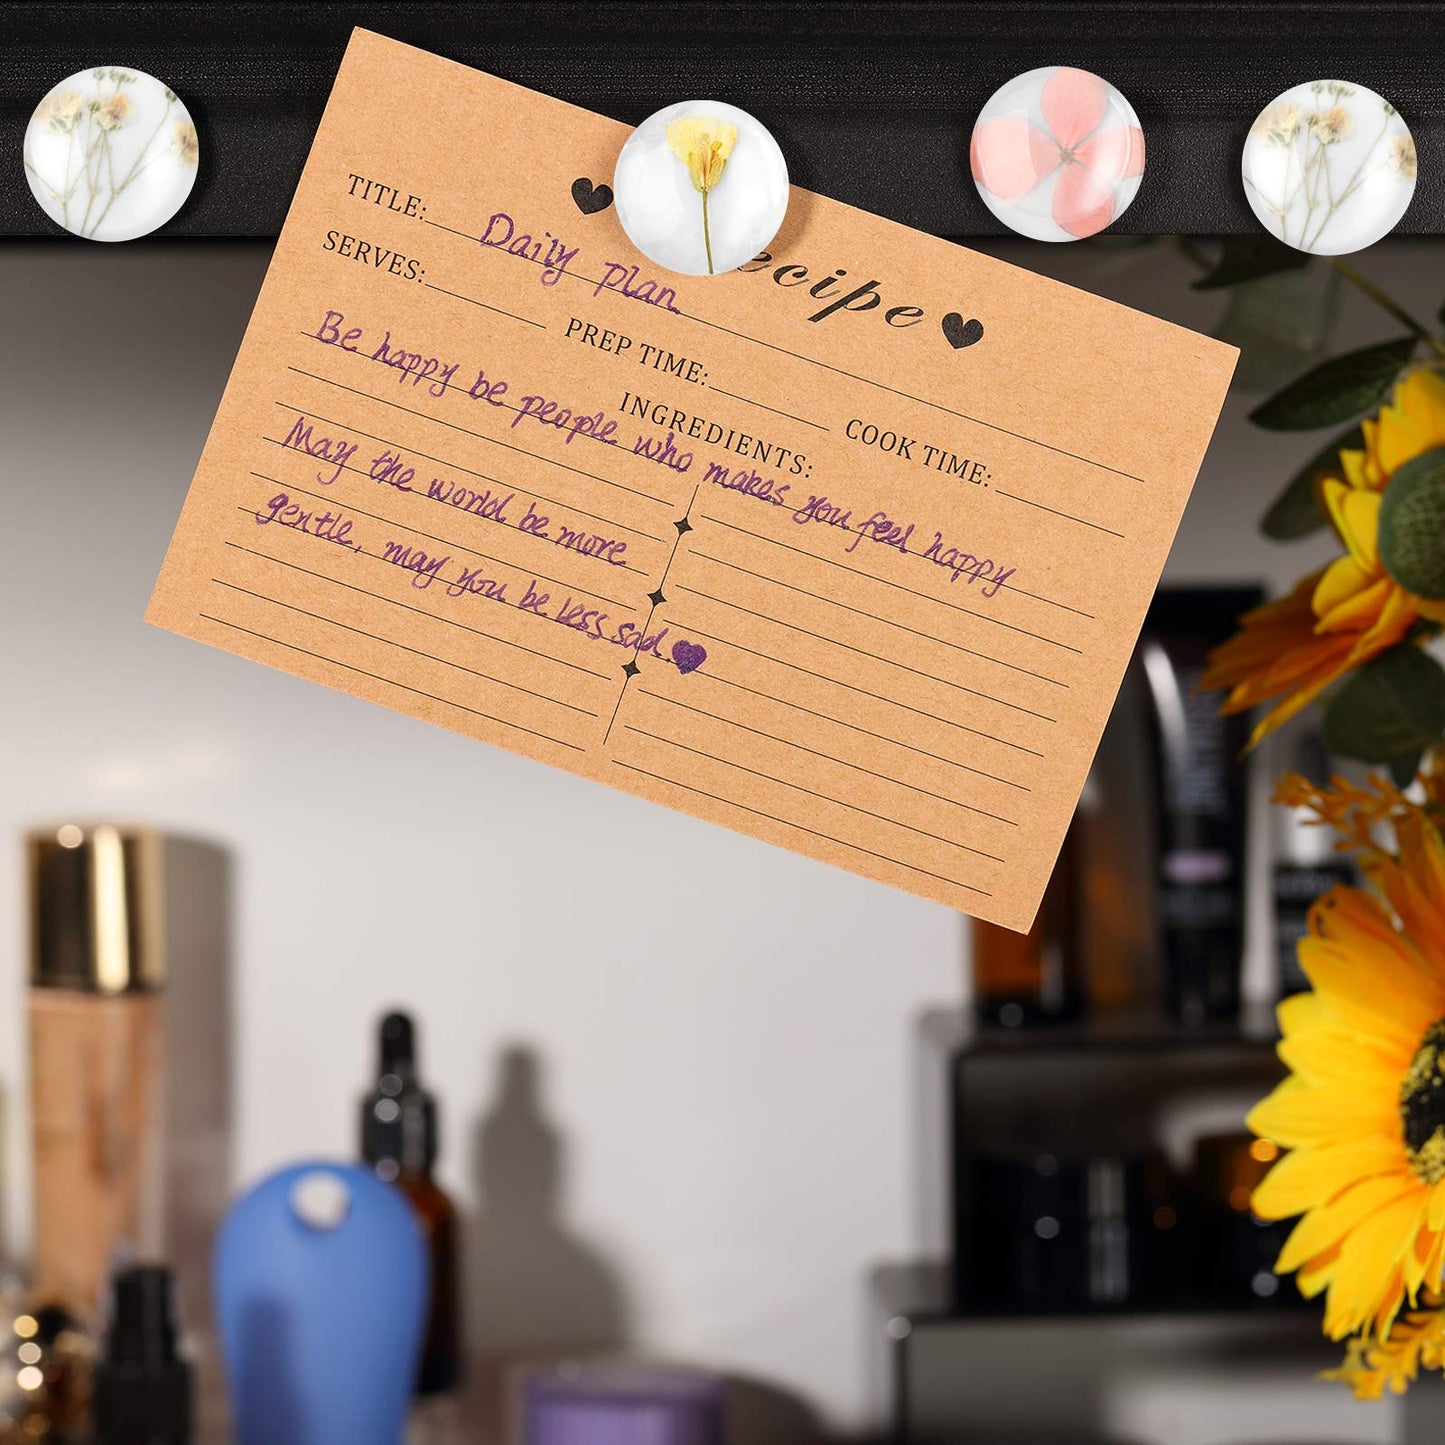 ♥ ecipe ♥
TITLE: Daily plan.
SERVES: PREP TIME: COOK TIME:
INGREDIENTS:
Be happy be people who makes you feel happy
May the world be more
gentle, may you be less sad.♥